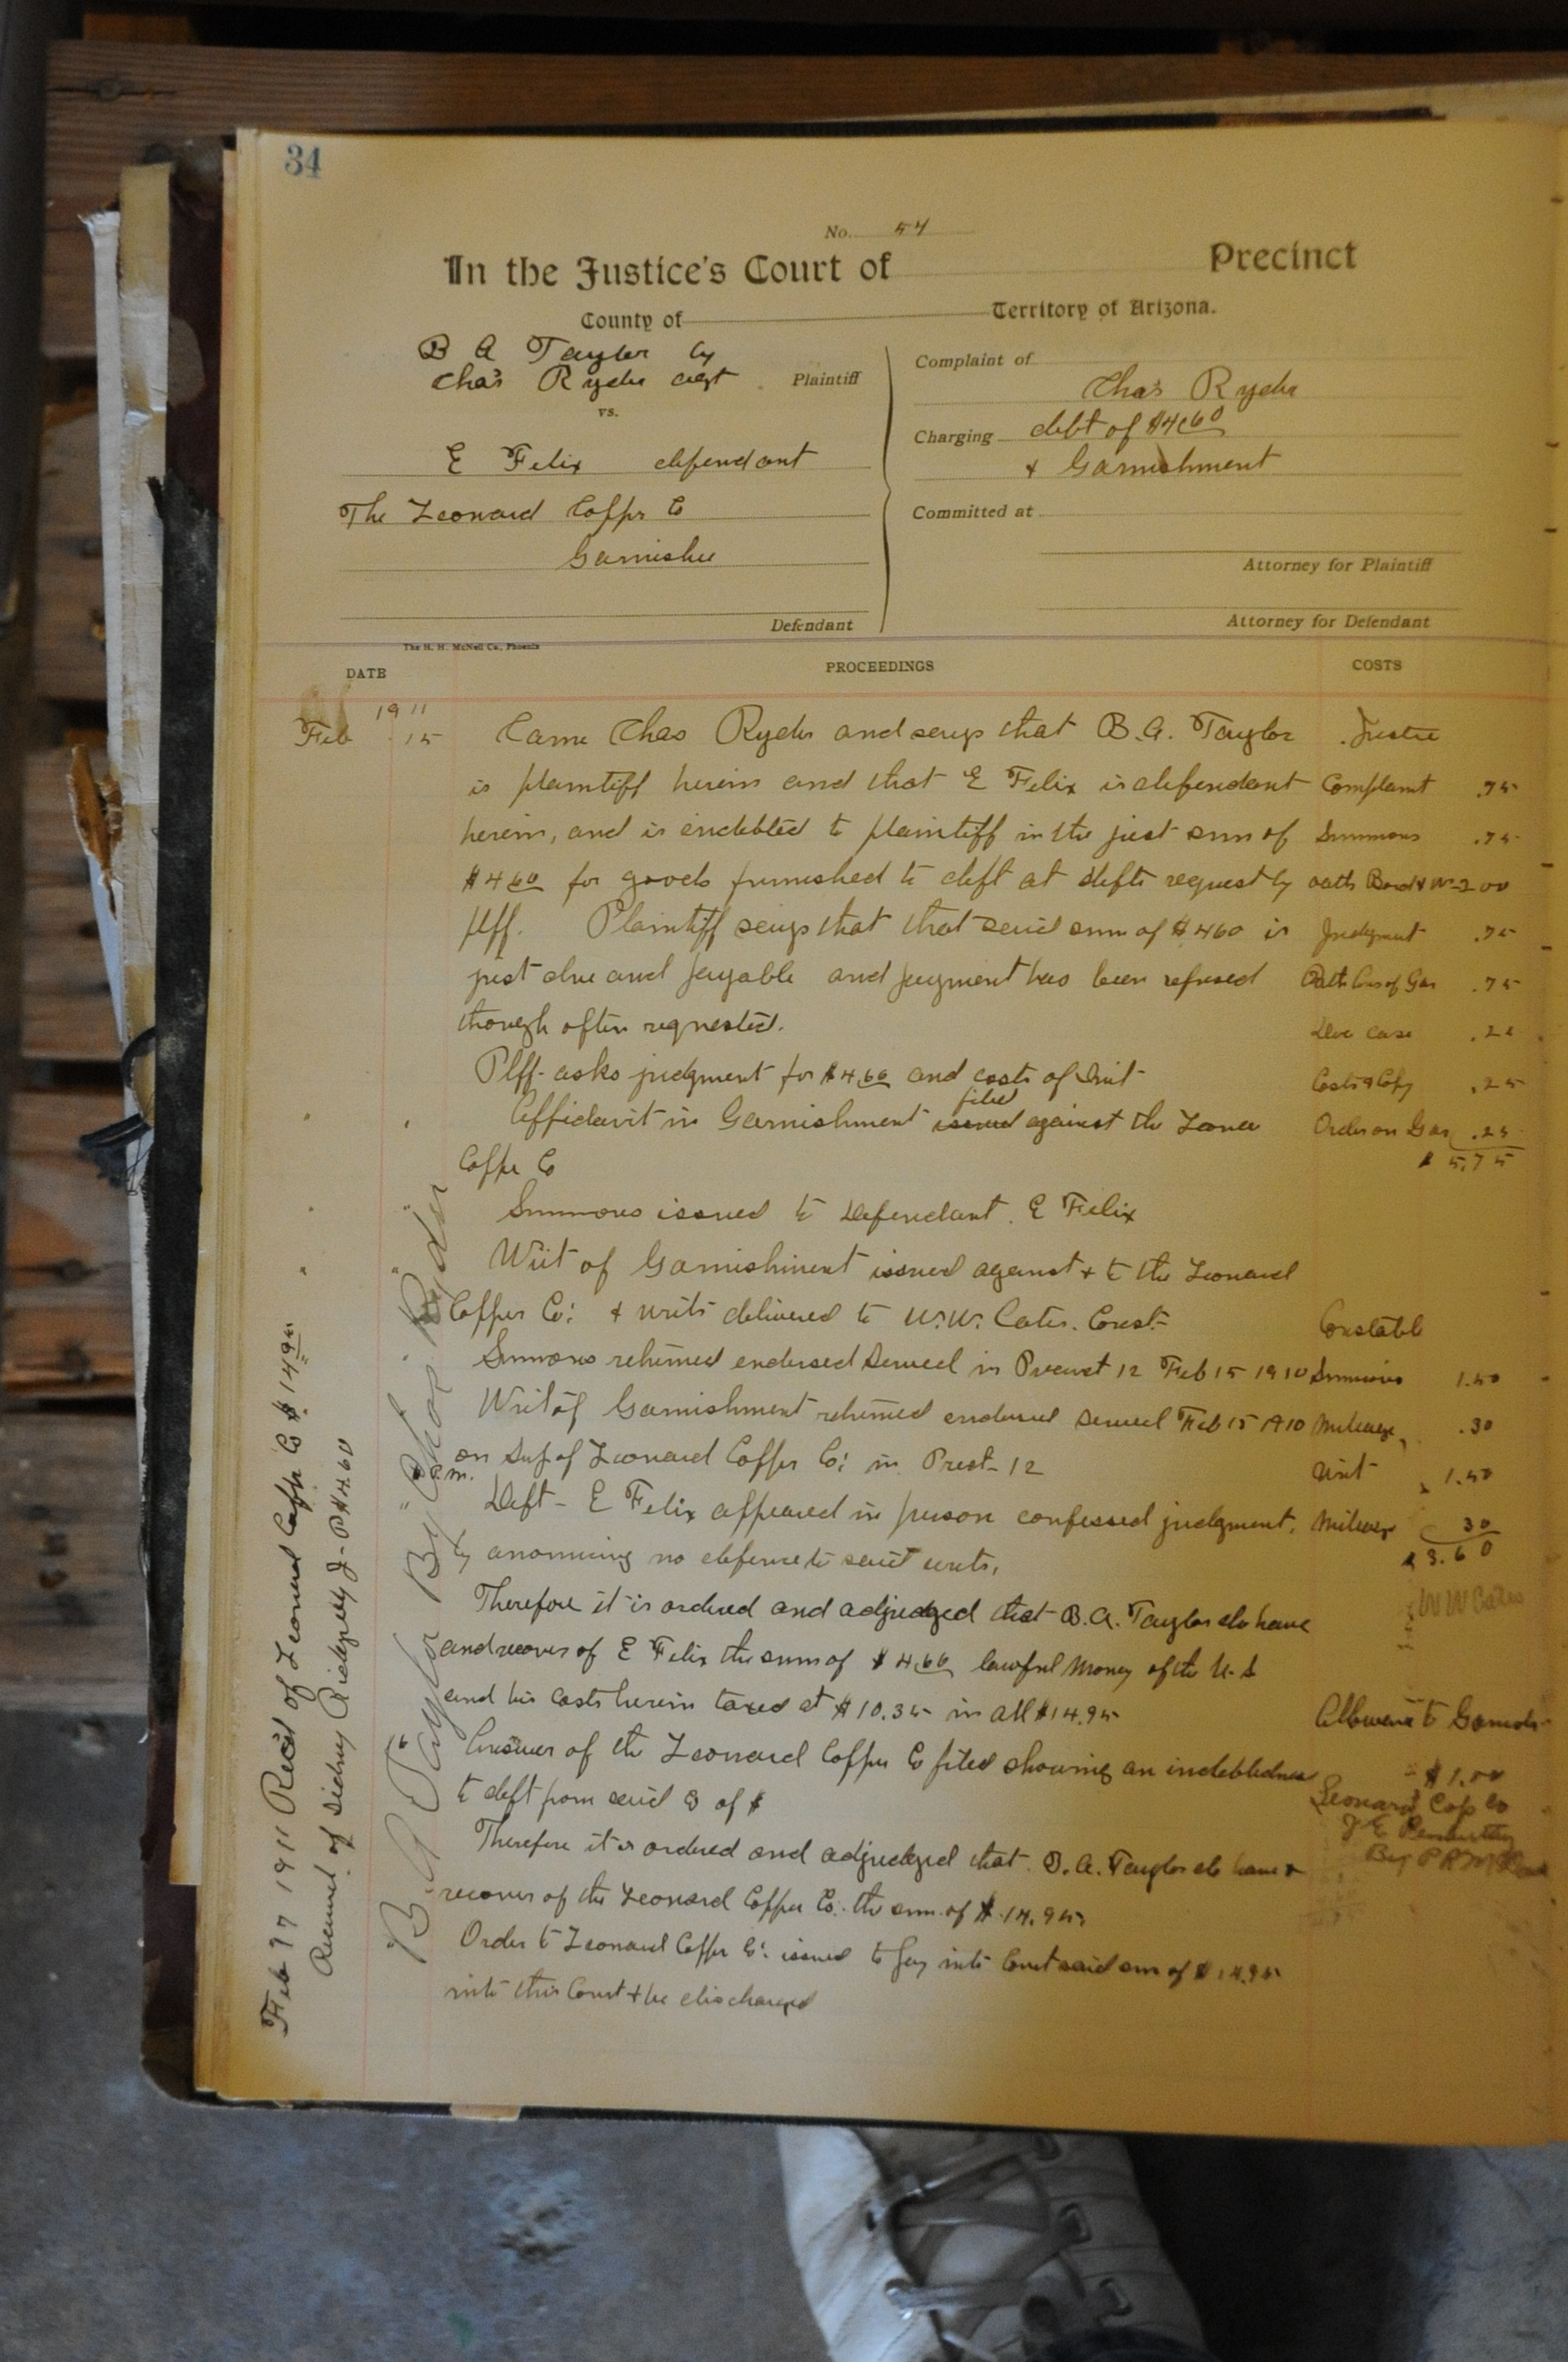 34
No. 54
In the Justice's Court of Precinct
County of Territory of Arizona.
B A Taylor by
Chas Ryder agt Plaintiff
vs.
E Felix defendant
The Leonard Copper Co
Garnishee
Defendant
Complaint of
Chas Ryder
Charging debt of $4.60
& Garnishment
Committed at
Attorney for Plaintiff
Attorney for Defendant
The H. H. McNeil Co., Phoenix
DATE PROCEEDINGS COSTS
1911
Feb 15 Came Chas Ryder and says that B.A. Taylor Justice
is plaintiff herein and that E Felix is defendant Complaint .75
herein, and is endebted to plaintiff in the just sum of Summons .75
$4.60 for goods furnished to deft at defts request by oath Bond & W 2 00
plff. Plaintiff says that that said sum of $460 is Judgment .75
just due and payable and payment has been refused Oath of Gar .75
though often requested. case
Plff. asks judgment for $4.60 and costs of Suit Costs & Copy .25
filed
Affidavit in Garnishment issued against the Leona Order on Gar .25
Copper Co $ 5.75
Summons issued to Defendant. E Felix
Writ of Garnishment issued against & to the Leonard
Copper Co: & writs delivered to W.W. Cates. Const. Constable
Summons returned endorsed Served in Precinct 12 Feb 15 1910 Summons 1.50
Writ of Garnishment returned endorsed served Feb 15 1910 Mileage .30
on Supt of Leonard Copper Co: in Prect- 12 Writ 1.50
P.m. Deft- E Felix appeared in person confessed judgment, Mileage 30
by anouncing no defense to said writs, $3.60
W W Cates
Therefore it is ordered and adjudged that B.A. Taylor do have
and recover of E Felix the sum of $4.60 lawful Money of the U.S
and his costs herein taxed at $10.35 in all $14.95 Allowance to Garnish
16 Answer of the Leonard Copper Co filed showing an indebtedness $1.00
to deft from said Co of $ Leonard Cop Co
Therefore it is ordered and adjudged that B.A. Taylor do have & By P R
recover of the Leonard Copper Co. the sum of $14.95
Order to Leonard Copper Co: issued to pay into Court said sum of $14.95
into this Court & be discharged
Feb 17 1911 Recd of Leonard Copper Co $ 14.95
Received of Sidney J.P. $4.60
B.A Taylor By Chas Ryder